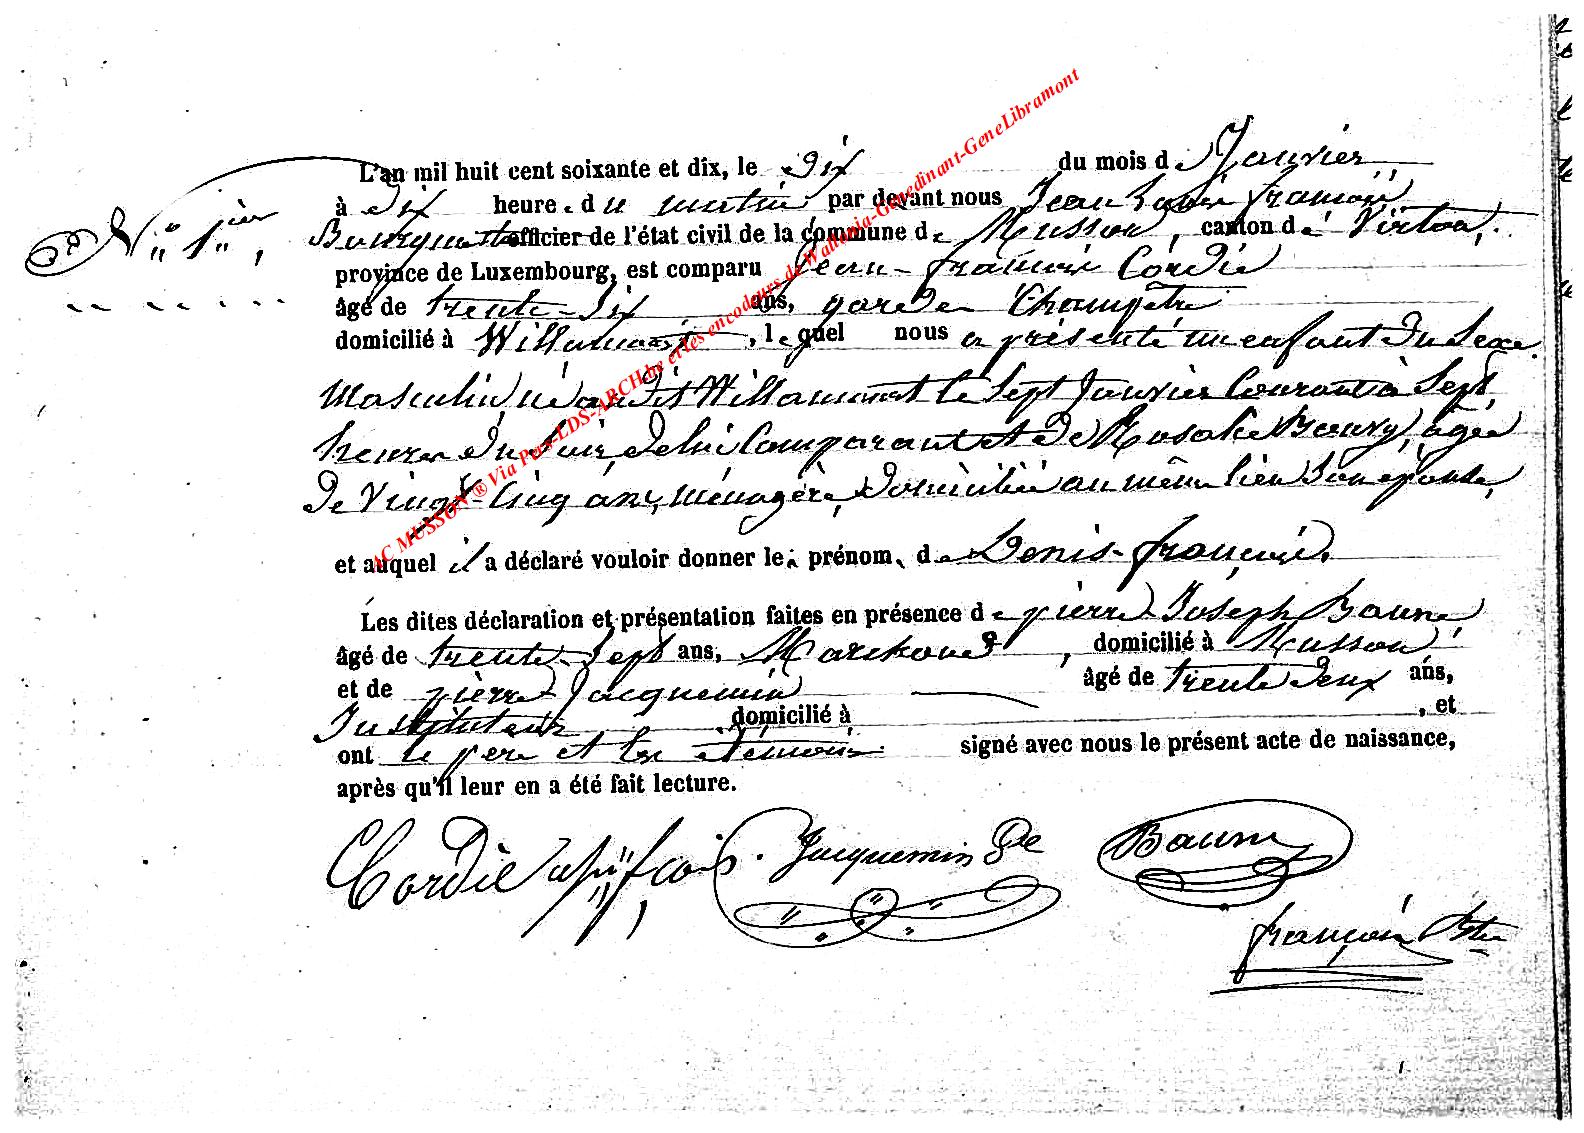 N° 1er,
L'an mil huit cent soixante et dix, le dix du mois de Janvier
à dix heures du matin par devant nous Jean Louis François
Bourguet officier de l'état civil de la commune de Musson, canton de Virton,
province de Luxembourg, est comparu Jean-François Cordié
âgé de trente-six ans, garde Champêtre
domicilié à Willancourt, lequel nous a présenté un enfant du sexe
Masculin, né au dit Willancourt le Sept Janvier Courant à Sept
heures du soir, de lui Comparant et de Rosalie Bauvy, âgée
de Vingt-Cinq ans, ménagère, domiciliée au même lieu son épouse,
et auquel il a déclaré vouloir donner les prénoms de Denis-François.
Les dites déclaration et présentation faites en présence de pierre Joseph Baune
âgé de trente-Sept ans, Marchand, domicilié à Musson
et de pierre Jacquemin âgé de trente deux ans,
Instituteur domicilié à , et
ont le père et les témoins signé avec nous le présent acte de naissance,
après qu'il leur en a été fait lecture.
Cordié Jacquemin Baune
françois
AC MUSSON ® Via Pers-LDS-ARCH.be et les encodeurs de Wallonia-Genedinant-GeneLibramont